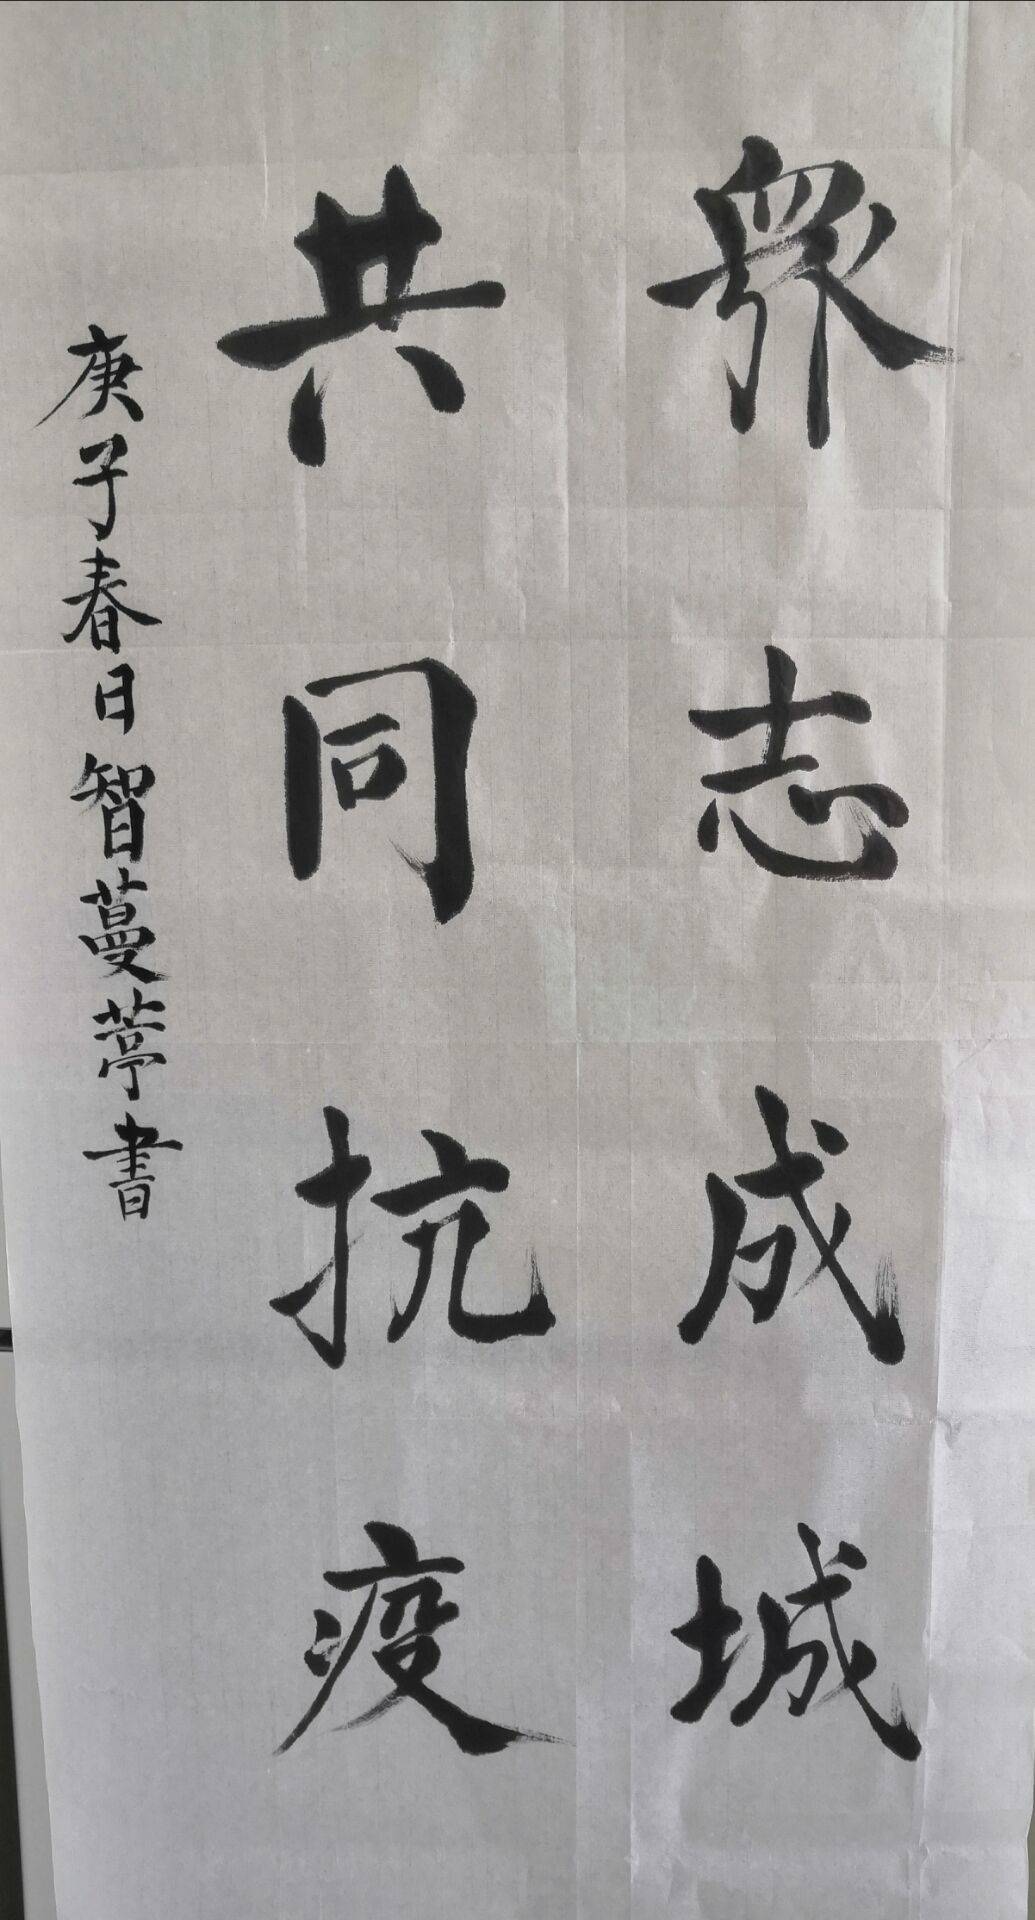 眾志成城
共同抗疫
庚子春日智蔓葶書